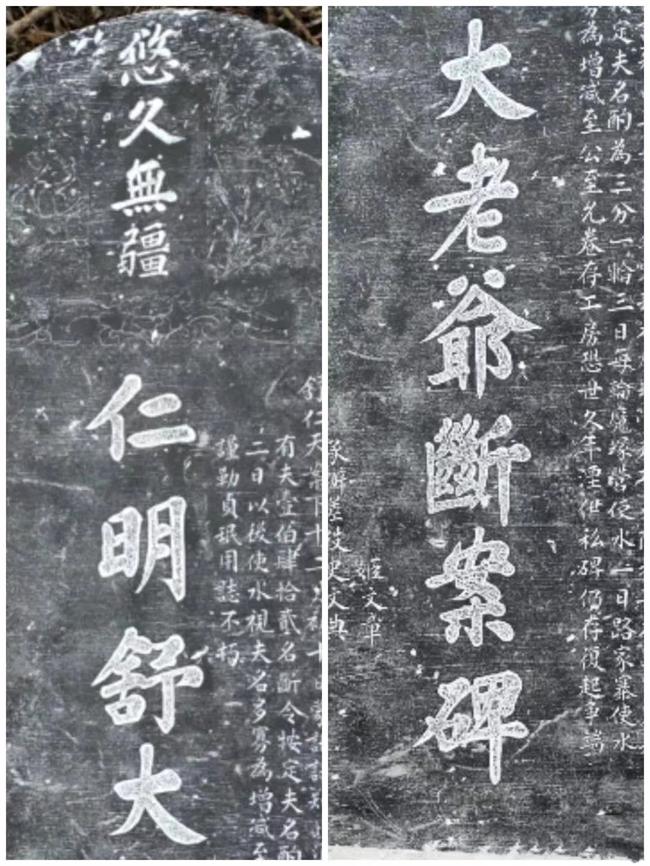 悠久無疆
有夫壹伯肆拾貳名斷令按定夫名酌
二日以後使水視夫名多寡為增減至
謹勒貞珉用誌不朽
仁明舒大
按定夫名酌為三分一輪三日每輪魔塚營使水一日路家寨使水
為增減至公至允卷存工房恐世久年湮但私碑仍存復起爭端
大老爺斷案碑
姬文章